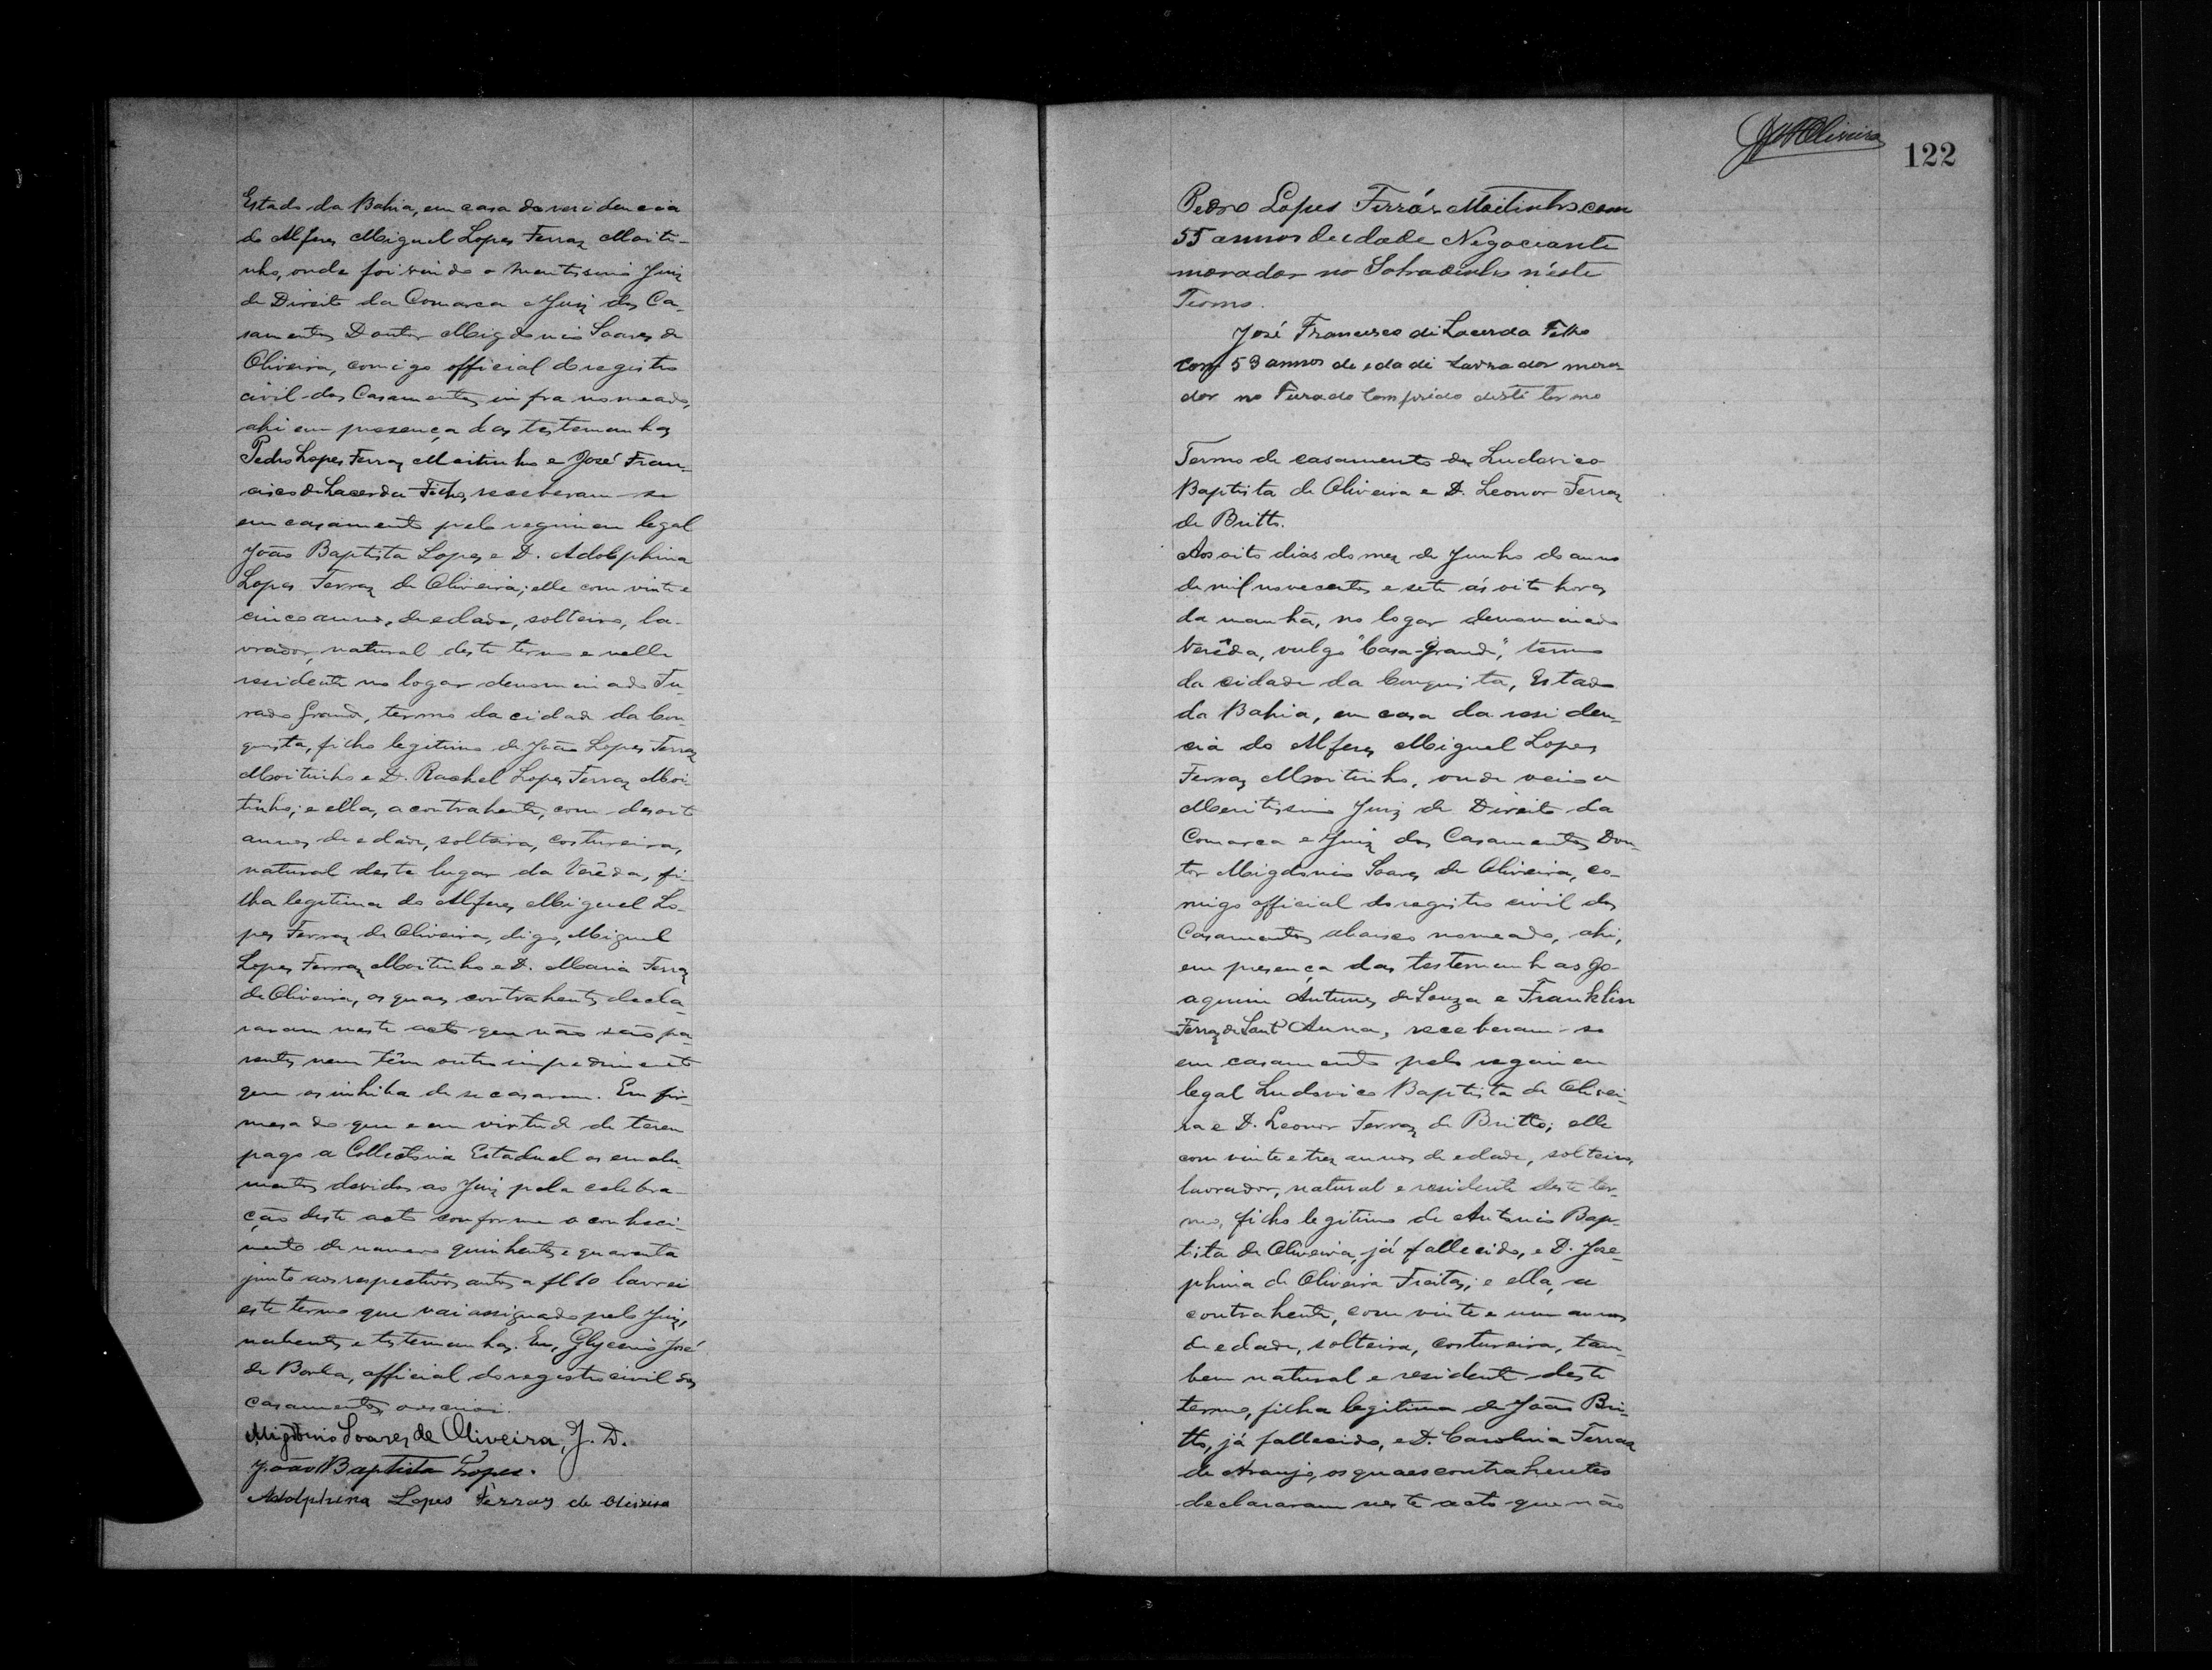 Estado da Bahia, em casa da residencia
do Alferes Miguel Lopes Ferraz Moiti-
nho, onde foi vindo o Meritissimo Juiz
de Direito da Comarca e Juiz dos Ca-
samentos Doutor Migdonio Soares de
Oliveira, comigo official do registro
civil dos Casamentos infra nomeado,
ahi em presença das testemunhas
Pedro Lopes Ferraz Moitinho e José Fran-
cisco de Lacerda Filho, receberam-se
em casamento pelo regimen legal
João Baptista Lopes e D. Adolphina
Lopes Ferraz de Oliveira; elle com vinte e
cinco annos, de edade, solteiro, la-
vrador, natural deste termo e nelle
residente no logar denominado Fu-
rado Grande, termo da cidade da Con-
quista, filho legitimo de João Lopes Ferraz
Moitinho e D. Rachel Lopes Ferraz Moi-
tinho; e ella, a contrahente, com desoito
annos de edade, solteira, costureira,
natural deste lugar da Verêda, fi-
lha legitima do Alferes Miguel Lo-
pes Ferraz de Oliveira, digo, Miguel
Lopes Ferraz Moitinho e D. Maria Ferraz
de Oliveira, os quaes contrahentes decla-
raram neste acto que não são pa-
rentes nem têm outro impedimento
que os inhiba de se casarem. Em fir-
mesa do que e em virtude de terem
pago a Collectoria Estadual os emolu-
mentos devidos ao Juiz pela celebra-
ção deste acto conforme o conheci-
mento de numero quinhentos e quarenta
junto aos respectivos autos a fl 10 lavrei
este termo que vai assignado pelo Juiz,
nubentes e testemunhas. Eu, Glycerio José
de Borba, official do registro civil dos
casamentos o escrevi.
Migdonio Soares de Oliveira, J. D.
João Baptista Lopes.
Adolphina Lopes Ferraz de Oliveira
122
Pedro Lopes Ferráz Moitinho com
55 annos de edade Negociante
morador no Sobradinho n'éste
Termo.
José Francisco di Lacerda Filho
com 53 annos de edadi Lavrador mora-
dor no Furado Comprido desti termo
Termo de casamento de Ludovico
Baptista de Oliveira e D. Leonor Ferraz
de Britto.
Aos oito dias do mez de Junho do anno
de mil novecentos e sete ás oito horas
da manhã, no logar denominado
Verêda, vulgo "Casa-Grande", termo
da cidade da Conquista, Estado
da Bahia, em casa da residen-
cia do Alferes Miguel Lopes
Ferraz Moitinho, onde veio o
Meritissimo Juiz de Direito da
Comarca e Juiz dos Casamentos Dou-
tor Migdonio Soares de Oliveira, co-
migo official do registro civil dos
Casamentos abaixo nomeado, ahi,
em presença das testemunhas Jo-
aquim Antunes de Souza e Franklin
Ferraz de Sant'Anna, receberam-se
em casamento pelo regimen
legal Ludovico Baptista de Olivei-
ra e D. Leonor Ferraz de Britto; elle
com vinte e trez annos de edade, solteiro,
lavrador, natural e residente deste ter-
mo, filho legitimo de Antonio Bap-
tista de Oliveira, já fallecido, e D. Jose-
phina de Oliveira Freitas; e ella, a
contrahente, com vinte e um annos
de edade, solteira, costureira, tam-
bem natural e residente deste
termo, filha legitima de João Bri-
tto, já fallecido, e D. Carolina Ferraz
de Araujo, os quaes contrahentes
declararam neste acto que não